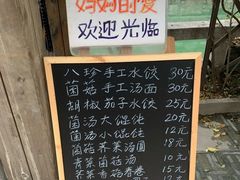 妈妈的爱
欢迎光临
八珍手工水饺 30元
菌菇手工汤面 30元
胡椒茄子水饺 25元
菌汤大馄饨 20元
菌汤小馄饨 12元
菌菇荠菜汤圆 18元
青菜菌菇汤 10元
荠菜香菇春卷 15元